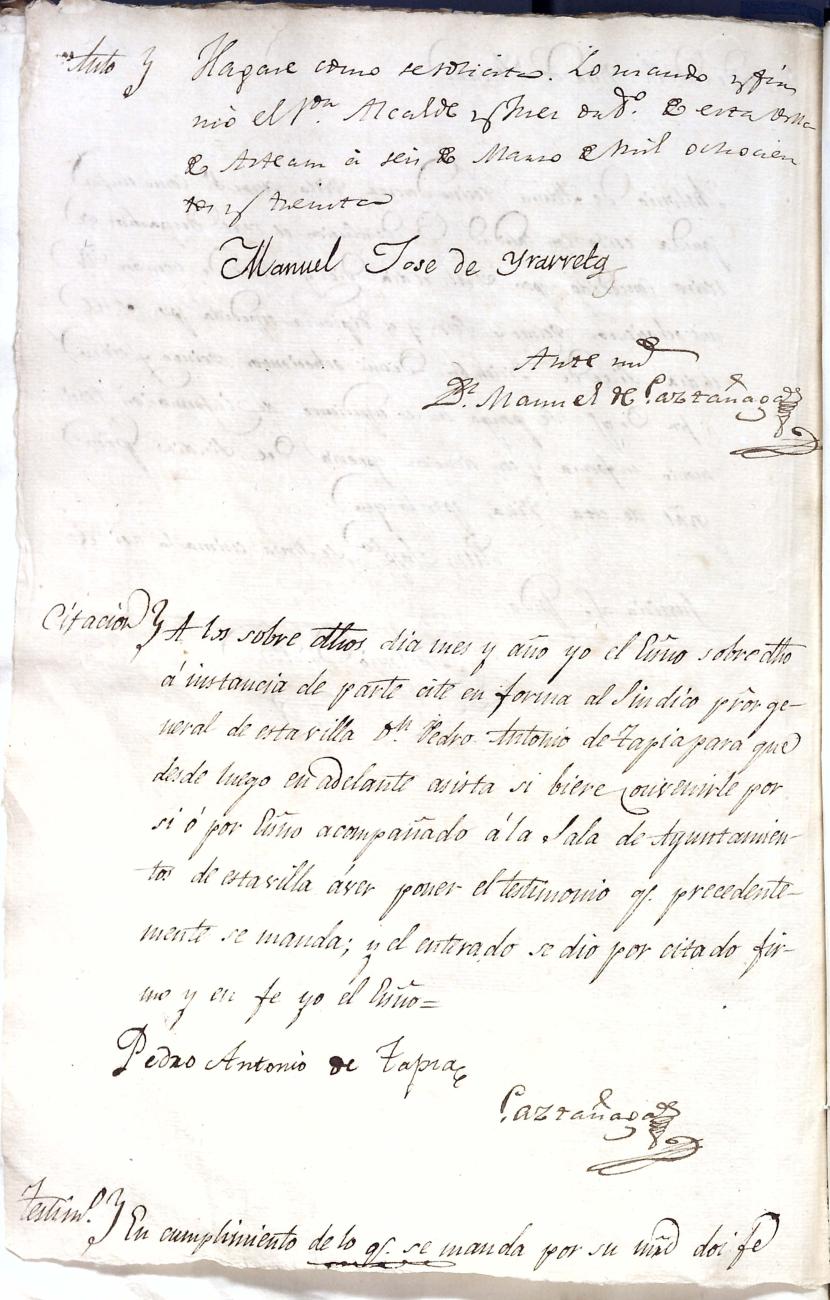 Auto y Hagase como se solicita. Lo mando y fir
mó el Sor. Alcalde y Juez ord.º de esta villa
de Arteaui á seis de Marzo de mil ochocien
tos y treinta
Manuel Jose de Yrarreta
Ante mi
Dn. Manuel de Gaztañaga
Citacion y A los sobre dhos dia mes y año yo el Esño sobre dho
á instancia de parte cite en forma al Sindico prõr ge-
neral de esta villa Dn. Pedro Antonio de Tapia para que
desde luego en adelante asista si biere convenirle por
si ó por Esño acompañado á la Sala de Ayuntamien-
tos de esta villa á ver poner el testimonio q.e precedente-
mente se manda; y el enterado se dio por citado fir-
mo y en fe yo el Esño=
Pedro Antonio de Tapia
Gaztañaga
Testim.º y En cumplimiento de lo q.e se manda por su mrd doi fe